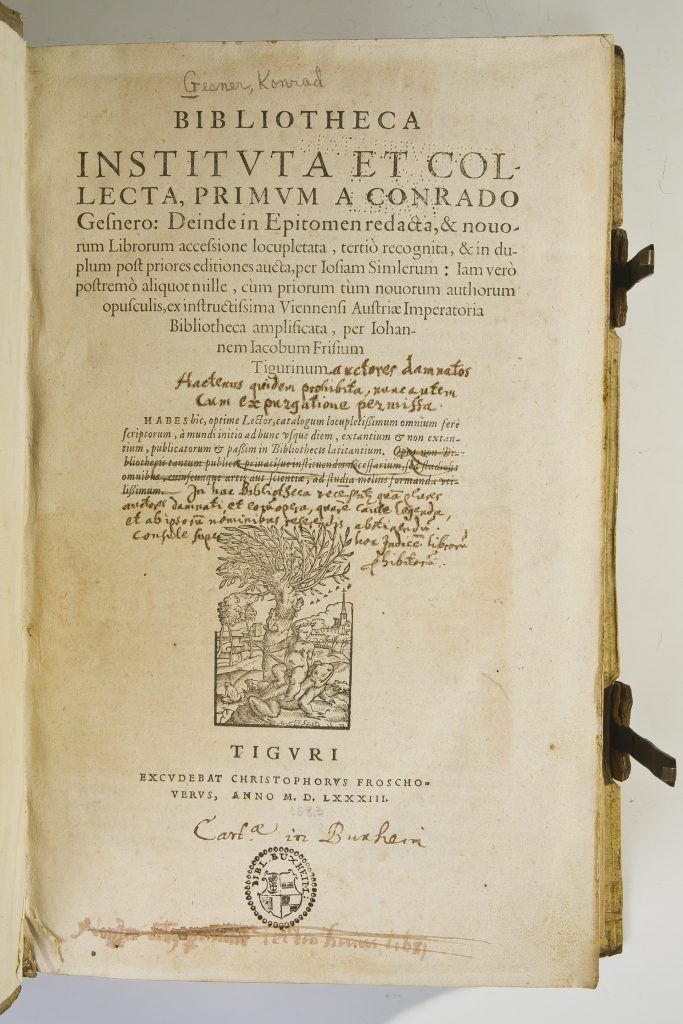 Gesner, Konrad
BIBLIOTHECA
INSTITVTA ET COL-
LECTA, PRIMVM A CONRADO
Geſnero: Deinde in Epitomen redacta, & nouo-
rum Librorum acceſsione locupletata, tertiò recognita, & in du-
plum poſt priores editiones aucta, per Ioſiam Simlerum: Iam verò
poſtremò aliquot mille, cùm priorum tùm nouorum authorum
opuſculis, ex inſtructiſsima Viennenſi Auſtriæ Imperatoria
Bibliotheca amplificata, per Iohan-
nem Iacobum Friſium
Tigurinum. auctores damnatos
Hactenus quidem prohibita, nunc autem
cum expurgatione permissa.
HABES hic, optime Lector, catalogum locupletiſsimum omnium ferè
ſcriptorum, à mundi initio ad hunc vſque diem, extantium & non extan-
tium, publicatorum & paſsim in Bibliothecis latitantium. Opus non Bi-
bliothecis tantum publicis priuatiſue inſtituendis neceſſarium, ſed ſtudioſis
omnibus, cuiuſcunque artis aut ſcientiæ, ad ſtudia melius formanda vti-
liſsimum. In hac Bibliotheca
auctores damnati et eorum opera, quare caute legenda,
et ab ipsorum nominibus abstinendum.
Consule hoc Indicem librorum
phibitorum.
TIGVRI
EXCVDEBAT CHRISTOPHORVS FROSCHO-
VERVS, ANNO M. D. LXXXIII.
1583
Cartae in Buxheim
BIBL. BUXHEIM.